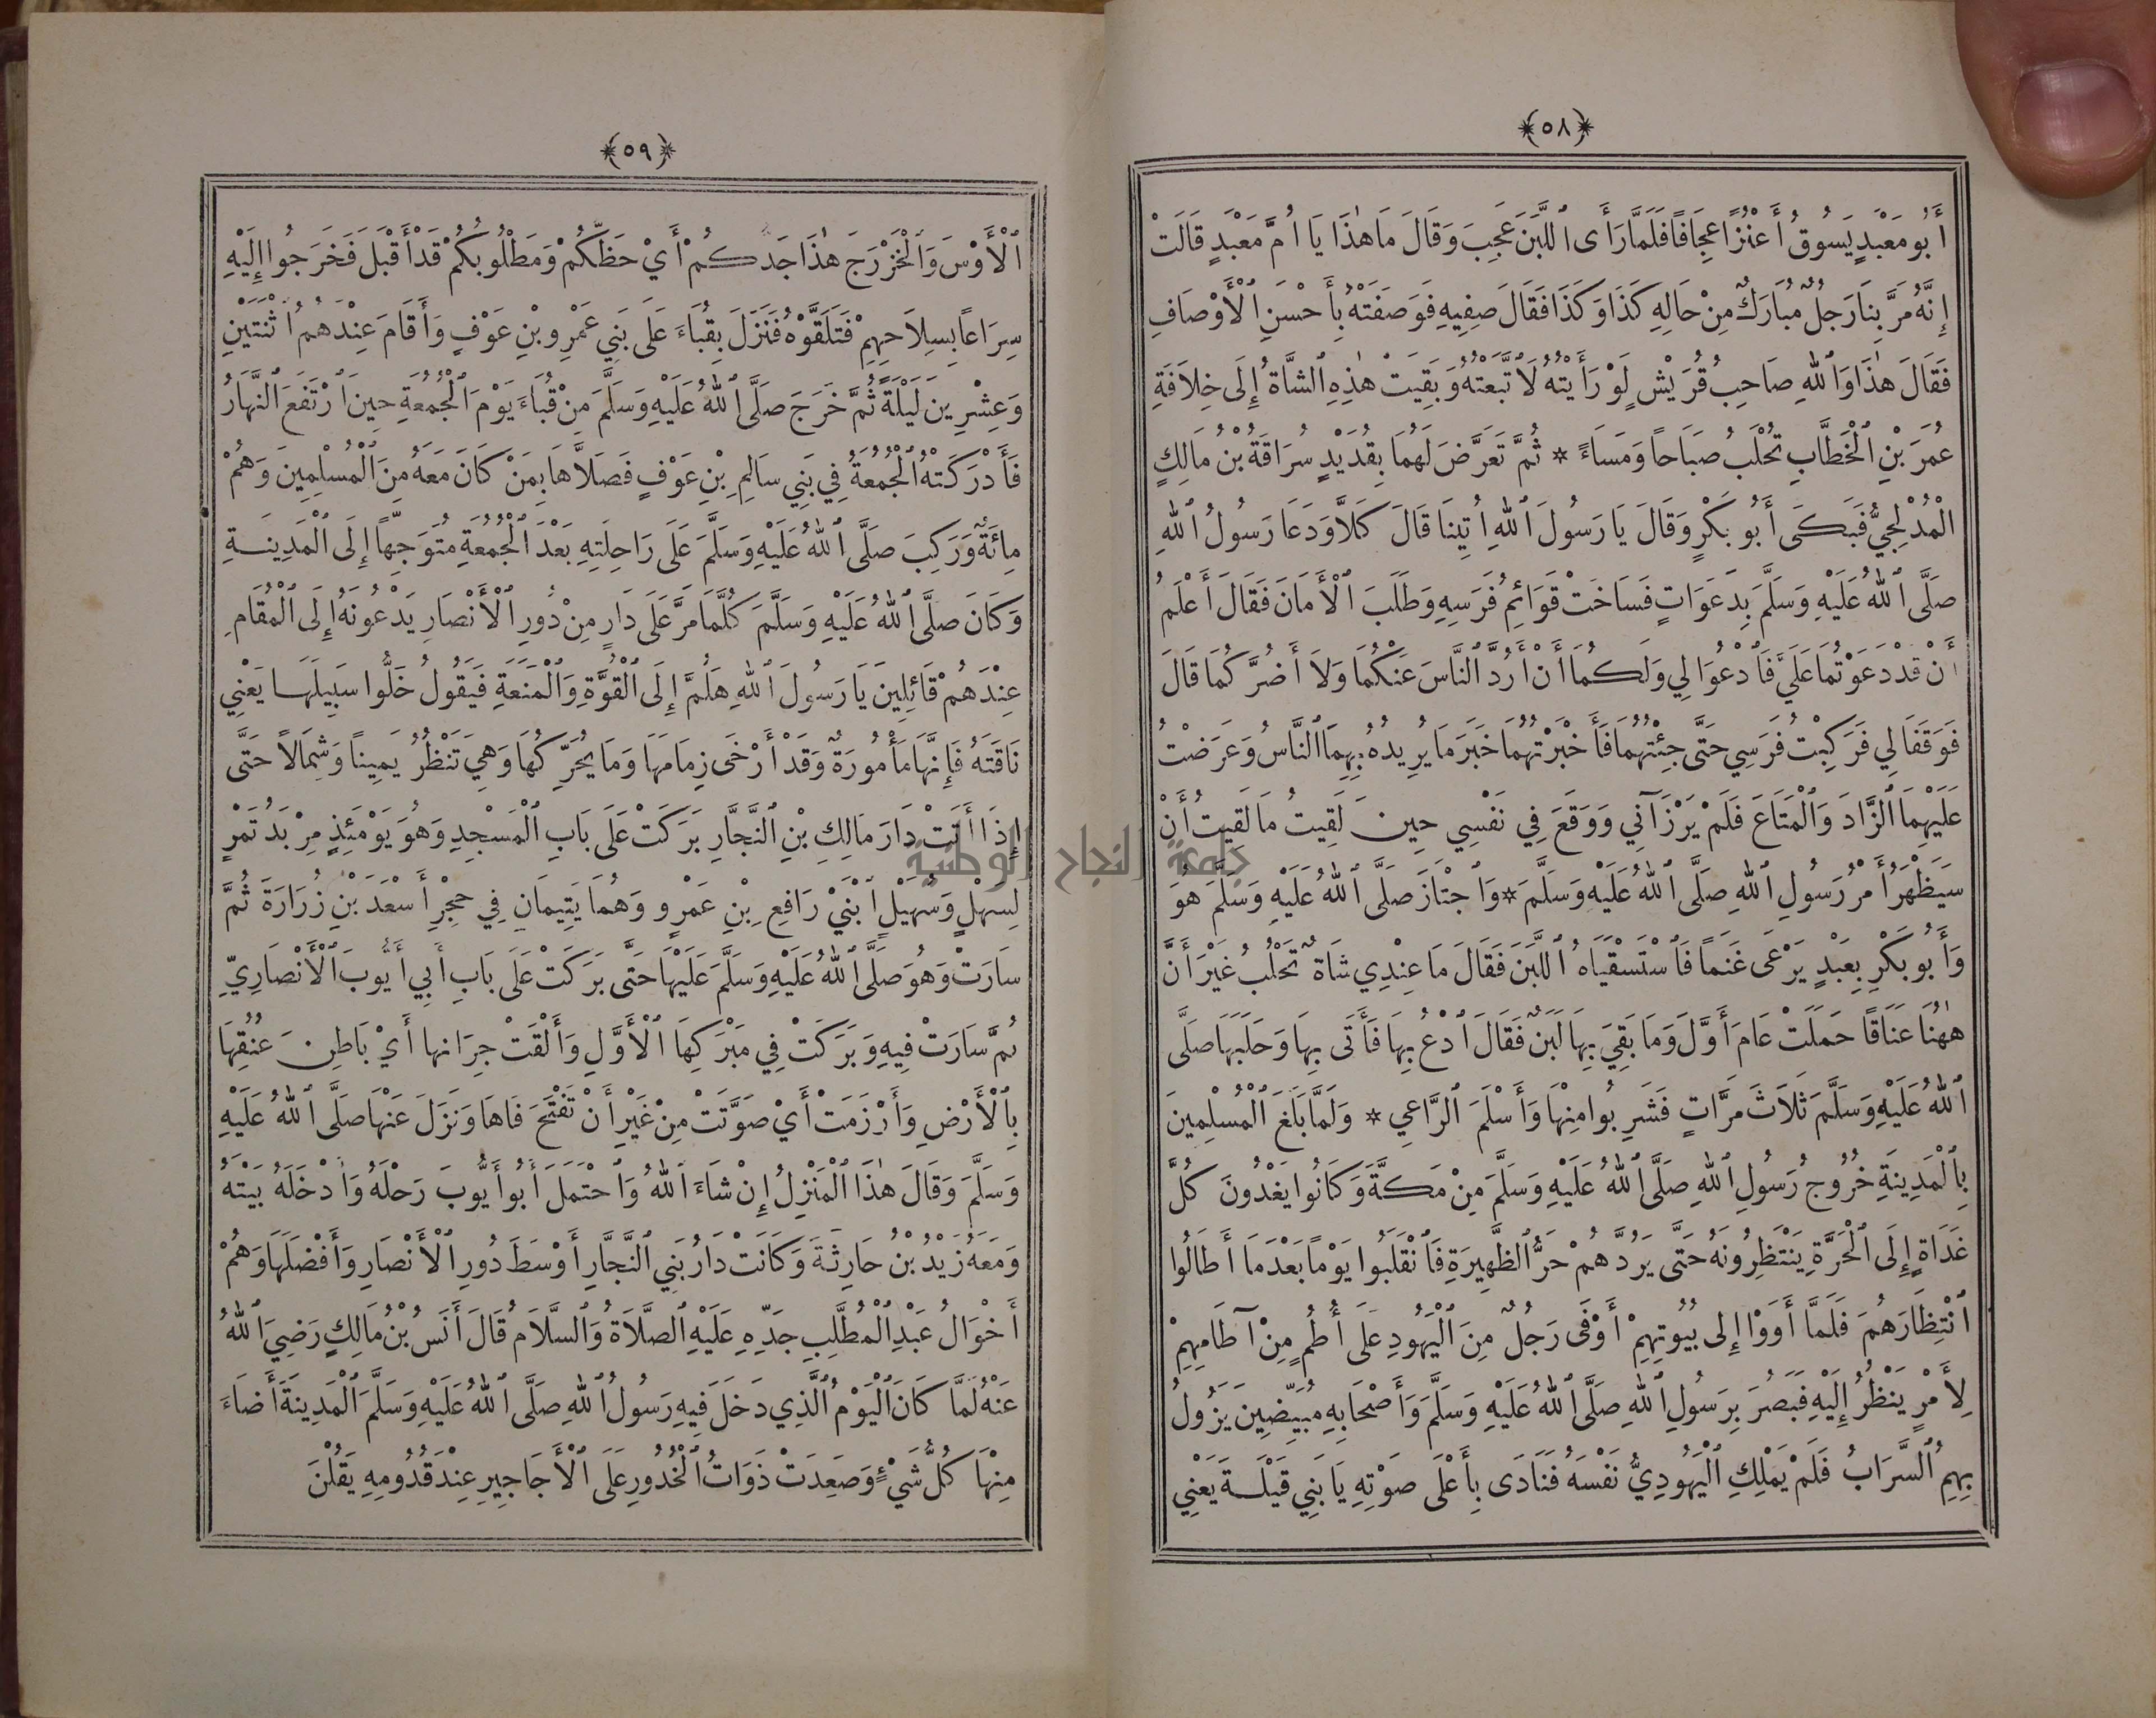 ﴿٥٨﴾
أَبُو مَعْبَدٍ يَسُوقُ أَعْنُزًا عِجَافًا فَلَمَّا رَأَى ٱللَّبَنَ عَجِبَ وَقَالَ مَا هٰذَا يَا أُمَّ مَعْبَدٍ قَالَتْ
إِنَّهُ مَرَّ بِنَا رَجُلٌ مُبَارَكٌ مِنْ حَالِهِ كَذَا وَكَذَا فَقَالَ صِفِيهِ فَوَصَفَتْهُ بِأَحْسَنِ ٱلْأَوْصَافِ
فَقَالَ هٰذَا وَٱللهِ صَاحِبُ قُرَيْشٍ لَوْ رَأَيْتُهُ لَاتَّبَعْتُهُ وَبَقِيَتْ هٰذِهِ ٱلشَّاةُ إِلَى خِلَافَةِ
عُمَرَ بْنِ ٱلْخَطَّابِ تُحْلَبُ صَبَاحاً وَمَسَاءً * ثُمَّ تَعَرَّضَ لَهُمَا بِقُدَيْدٍ سُرَاقَةُ بْنُ مَالِكٍ
ٱلْمُدْلِجِيُّ فَبَكَى أَبُو بَكْرٍ وَقَالَ يَا رَسُولَ ٱللهِ أُتِينَا قَالَ كَلَّا وَدَعَا رَسُولُ ٱللهِ
صَلَّى ٱللهُ عَلَيْهِ وَسَلَّمَ بِدَعَوَاتٍ فَسَاخَتْ قَوَائِمُ فَرَسِهِ وَطَلَبَ ٱلْأَمَانَ فَقَالَ أَعْلَمُ
أَنْ قَدْ دَعَوْتُمَا عَلَيَّ فَٱدْعُوَا لِي وَلَكُمَا أَنْ أَرُدَّ ٱلنَّاسَ عَنْكُمَا وَلَا أَضُرَّكُمَا قَالَ
فَوَقَفَا لِي فَرَكِبْتُ فَرَسِي حَتَّى جِئْتُهُمَا فَأَخْبَرْتُهُمَا خَبَرَ مَا يُرِيدُهُ بِهِمَا ٱلنَّاسُ وَعَرَضْتُ
عَلَيْهِمَا ٱلزَّادَ وَٱلْمَتَاعَ فَلَمْ يَرْزَآنِي وَوَقَعَ فِي نَفْسِي حِينَ لَقِيتُ مَا لَقِيتُ أَنْ
سَيَظْهَرُ أَمْرُ رَسُولِ ٱللهِ صَلَّى ٱللهُ عَلَيْهِ وَسَلَّمَ * وَٱجْتَازَ صَلَّى ٱللهُ عَلَيْهِ وَسَلَّمَ هُوَ
وَأَبُو بَكْرٍ بِعَبْدٍ يَرْعَى غَنَماً فَٱسْتَسْقَيَاهُ ٱللَّبَنَ فَقَالَ مَا عِنْدِي شَاةٌ تُحْلَبُ غَيْرَ أَنَّ
هٰهُنَا عَنَاقًا حَمَلَتْ عَامَ أَوَّلَ وَمَا بَقِيَ بِهَا لَبَنٌ فَقَالَ ٱدْعُ بِهَا فَأَتَى بِهَا وَحَلَبَهَا صَلَّى
ٱللهُ عَلَيْهِ وَسَلَّمَ ثَلَاثَ مَرَّاتٍ فَشَرِبُوا مِنْهَا وَأَسْلَمَ ٱلرَّاعِي * وَلَمَّا بَلَغَ ٱلْمُسْلِمِينَ
بِٱلْمَدِينَةِ خُرُوجُ رَسُولِ ٱللهِ صَلَّى ٱللهُ عَلَيْهِ وَسَلَّمَ مِنْ مَكَّةَ وَكَانُوا يَغْدُونَ كُلَّ
غَدَاةٍ إِلَى ٱلْحَرَّةِ يَنْتَظِرُونَهُ حَتَّى يَرُدَّهُمْ حَرُّ ٱلظَّهِيرَةِ فَٱنْقَلَبُوا يَوْماً بَعْدَمَا أَطَالُوا
ٱنْتِظَارَهُمْ فَلَمَّا أَوَوْا إِلَى بُيُوتِهِمْ أَوْفَى رَجُلٌ مِنَ ٱلْيَهُودِ عَلَى أُطُمٍ مِنْ آطَامِهِمْ
لِأَمْرٍ يَنْظُرُ إِلَيْهِ فَبَصُرَ بِرَسُولِ ٱللهِ صَلَّى ٱللهُ عَلَيْهِ وَسَلَّمَ وَأَصْحَابِهِ مُبَيِّضِينَ يَزُولُ
بِهِمُ ٱلسَّرَابُ فَلَمْ يَمْلِكِ ٱلْيَهُودِيُّ نَفْسَهُ فَنَادَى بِأَعْلَى صَوْتِهِ يَا بَنِي قَيْلَةَ يَعْنِي
﴿٥٩﴾
ٱلْأَوْسَ وَٱلْخَزْرَجَ هٰذَا جَدُّكُمْ أَيْ حَظُّكُمْ وَمَطْلُوبُكُمْ قَدْ أَقْبَلَ فَخَرَجُوا إِلَيْهِ
سِرَاعاً بِسِلَاحِهِمْ فَتَلَقَّوْهُ فَنَزَلَ بِقُبَاءَ عَلَى بَنِي عَمْرِو بْنِ عَوْفٍ وَأَقَامَ عِنْدَهُمُ ٱثْنَتَيْنِ
وَعِشْرِينَ لَيْلَةً ثُمَّ خَرَجَ صَلَّى ٱللهُ عَلَيْهِ وَسَلَّمَ مِنْ قُبَاءَ يَوْمَ ٱلْجُمُعَةِ حِينَ ٱرْتَفَعَ ٱلنَّهَارُ
فَأَدْرَكَتْهُ ٱلْجُمُعَةُ فِي بَنِي سَالِمِ بْنِ عَوْفٍ فَصَلَّاهَا بِمَنْ كَانَ مَعَهُ مِنَ ٱلْمُسْلِمِينَ وَهُمْ
مِائَةٌ وَرَكِبَ صَلَّى ٱللهُ عَلَيْهِ وَسَلَّمَ عَلَى رَاحِلَتِهِ بَعْدَ ٱلْجُمُعَةِ مُتَوَجِّهاً إِلَى ٱلْمَدِينَةِ
وَكَانَ صَلَّى ٱللهُ عَلَيْهِ وَسَلَّمَ كُلَّمَا مَرَّ عَلَى دَارٍ مِنْ دُورِ ٱلْأَنْصَارِ يَدْعُونَهُ إِلَى ٱلْمُقَامِ
عِنْدَهُمْ قَائِلِينَ يَا رَسُولَ ٱللهِ هَلُمَّ إِلَى ٱلْقُوَّةِ وَٱلْمَنَعَةِ فَيَقُولُ خَلُّوا سَبِيلَهَا يَعْنِي
نَاقَتَهُ فَإِنَّهَا مَأْمُورَةٌ وَقَدْ أَرْخَى زِمَامَهَا وَمَا يُحَرِّكُهَا وَهِيَ تَنْظُرُ يَمِيناً وَشِمَالاً حَتَّى
إِذَا أَتَتْ دَارَ مَالِكِ بْنِ ٱلنَّجَّارِ بَرَكَتْ عَلَى بَابِ ٱلْمَسْجِدِ وَهُوَ يَوْمَئِذٍ مِرْبَدُ تَمْرٍ
لِسَهْلٍ وَسُهَيْلٍ ٱبْنَيْ رَافِعِ بْنِ عَمْرٍو وَهُمَا يَتِيمَانِ فِي حِجْرِ أَسْعَدَ بْنِ زُرَارَةَ ثُمَّ
سَارَتْ وَهُوَ صَلَّى ٱللهُ عَلَيْهِ وَسَلَّمَ عَلَيْهَا حَتَّى بَرَكَتْ عَلَى بَابِ أَبِي أَيُّوبَ ٱلْأَنْصَارِيِّ
ثُمَّ سَارَتْ فِيهِ وَبَرَكَتْ فِي مَبْرَكِهَا ٱلْأَوَّلِ وَأَلْقَتْ جِرَانَهَا أَيْ بَاطِنَ عُنُقِهَا
بِٱلْأَرْضِ وَأَرْزَمَتْ أَيْ صَوَّتَتْ مِنْ غَيْرِ أَنْ تَفْتَحَ فَاهَا وَنَزَلَ عَنْهَا صَلَّى ٱللهُ عَلَيْهِ
وَسَلَّمَ وَقَالَ هٰذَا ٱلْمَنْزِلُ إِنْ شَاءَ ٱللهُ وَٱحْتَمَلَ أَبُو أَيُّوبَ رَحْلَهُ وَأَدْخَلَهُ بَيْتَهُ
وَمَعَهُ زَيْدُ بْنُ حَارِثَةَ وَكَانَتْ دَارُ بَنِي ٱلنَّجَّارِ أَوْسَطَ دُورِ ٱلْأَنْصَارِ وَأَفْضَلَهَا وَهُمْ
أَخْوَالُ عَبْدِ ٱلْمُطَّلِبِ جَدِّهِ عَلَيْهِ ٱلصَّلَاةُ وَٱلسَّلَامُ قَالَ أَنَسُ بْنُ مَالِكٍ رَضِيَ ٱللهُ
عَنْهُ لَمَّا كَانَ ٱلْيَوْمُ ٱلَّذِي دَخَلَ فِيهِ رَسُولُ ٱللهِ صَلَّى ٱللهُ عَلَيْهِ وَسَلَّمَ ٱلْمَدِينَةَ أَضَاءَ
مِنْهَا كُلُّ شَيْءٍ وَصَعِدَتْ ذَوَاتُ ٱلْخُدُورِ عَلَى ٱلْأَجَاجِيرِ عِنْدَ قُدُومِهِ يَقُلْنَ
جامعة النجاح الوطنية